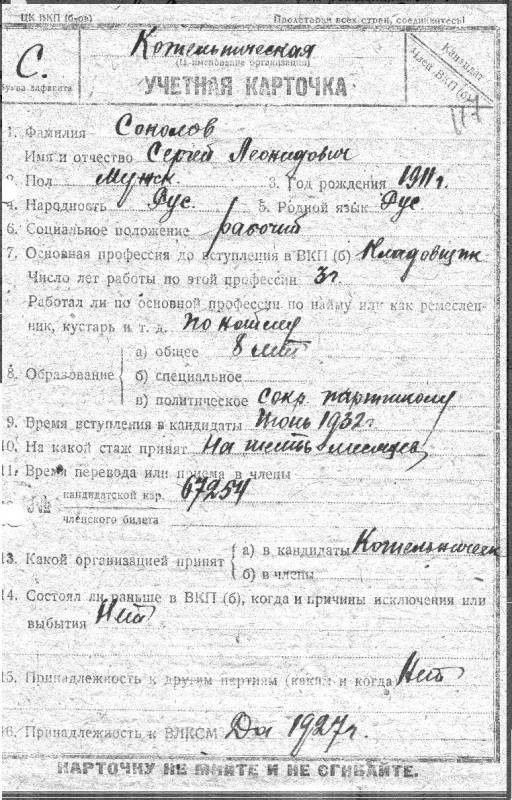 ЦК ВКП (б-ов) Пролетарии всех стран, соединяйтесь!
С.
Буква алфавита
Котельническая
(Наименование организации)
УЧЕТНАЯ КАРТОЧКА
Кандидат
Член ВКП (б)
1. Фамилия Соколов
Имя и отчество Сергей Леонидович
2. Пол Мужск. 3. Год рождения 1911 г.
4. Народность Рус. 5. Родной язык Рус
6. Социальное положение рабочий
7. Основная профессия до вступления в ВКП (б) Кладовщик
Число лет работы по этой профессии 3 г.
Работал ли по основной профессии по найму или как ремеслен-
ник, кустарь и т. д. По найму
8. Образование
а) общее 8 лет
б) специальное
в) политическое Сокр. партшколу
9. Время вступления в кандидаты Июнь 1932 г
10. На какой стаж принят На шесть месяцев
11. Время перевода или приема в члены
№ кандидатской кар. 67254
членского билета
13. Какой организацией принят
а) в кандидаты Котельническ
б) в члены
14. Состоял ли раньше в ВКП (б), когда и причины исключения или
выбытия Нет
15. Принадлежность к другим партиям (каким и когда) Нет
16. Принадлежность к ВЛКСМ Да 1927 г.
КАРТОЧКУ НЕ МНИТЕ И НЕ СГИБАЙТЕ.